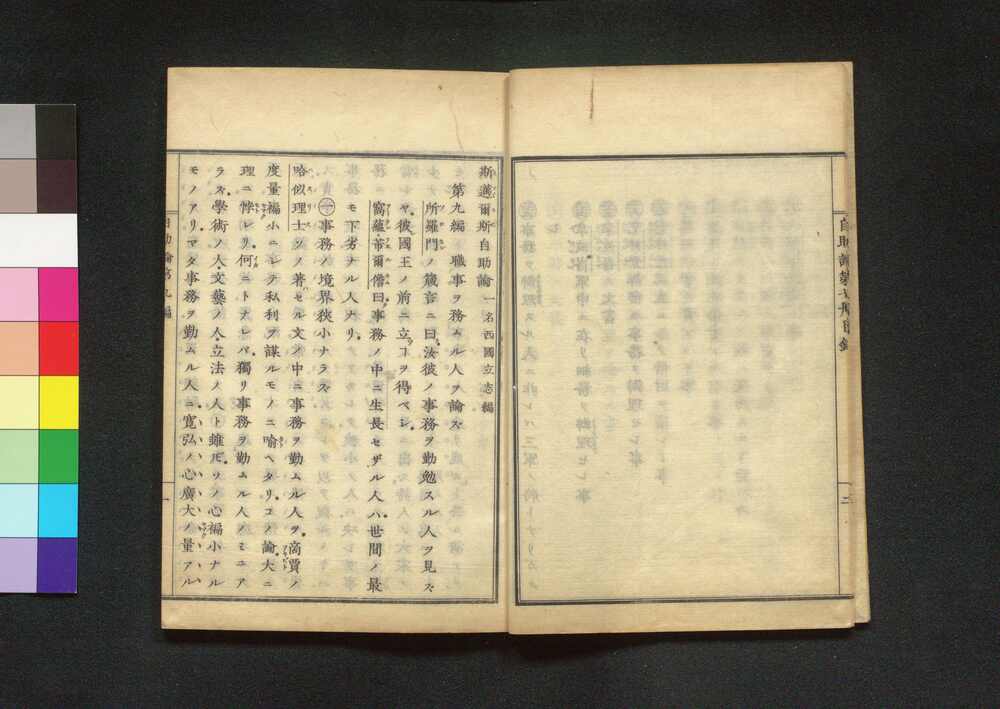 斯邁爾斯自助論 一名西國立志編
第九編 職事ヲ務ムル人ヲ論ズ
所羅門ノ箴言ニ曰汝彼ノ事務ヲ勤勉スル人ヲ見ズ
ヤ彼國王ノ前ニ立ヿヲ得ベシ
曰事務ノ中ニ生長セザル人ハ世間ノ最
モ下劣ナル人ナリ
㊀事務ノ境界狹小ナラズ
略似理士ソノ著セル文ノ中ニ事務ヲ勤ムル人ヲ商賈ノ
度量褊小ニシテ私利ヲ謀ルモノニ喻ヘタリコノ論大ニ
理ニ悖レリ何ニトナレバ獨リ事務ヲ勤ムル人ノミニア
ラズ學術ノ人文藝ノ人立法ノ人ト雖𪜈ソノ心褊小ナル
モノアリマタ事務ヲ勤ムル人ニ寛弘ノ心廣大ノ量アル
自助論第九編
一
二